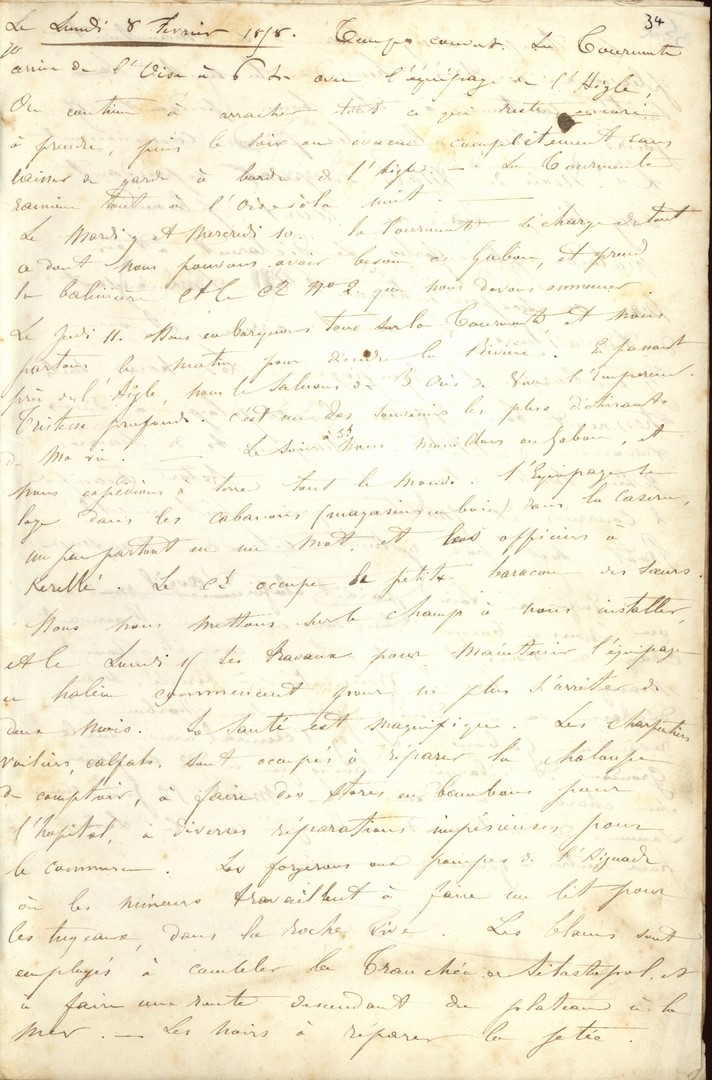 34
Le Lundi 8 Fevrier 1858. Temps couvert. La Tourmente
arrive de l'Oise à 6 h avec l'équipage de l'Aigle,
On continue à arracher tout ce qui reste encore
à prendre, puis le soir on évacue complètement, sans
laisser de garde à bord de l'Aigle. — La Tourmente
ramène tout à l'Oise à la nuit. —
Le Mardi 9 et Mercredi 10. la tourmente se charge de tout
ce dont nous pouvons avoir besoin au Gabon, et prend
la baleinière et le Ct No 2. que nous devons emmener.
Le Jeudi 11. Nous embarquons tous sur la Tourmente et nous
partons le matin pour descendre la Rivière. En passant
près de l'Aigle, nous le saluons de 3 Cris de Vive l'Empereur.
Tristesse profonde. c'est un des souvenirs les plus déchirants
de ma vie. — Le soir à 3h nous mouillons au Gabon, et
nous expédions à terre tout le monde. l'Equipage se
loge dans les cabanons (magasins en bois) dans la caserne,
un peu partout en un mot, et les officiers à
Kerellé. Le Ct occupe le petit baracon des Sœurs.
Nous nous mettons sur le champ à nous installer,
et le Lundi 15 les travaux pour maintenir l'équipage
en haleine commencent pour ne plus s'arrêter de
deux mois. La Santé est magnifique. Les charpentiers
voiliers, calfats, sont occupés à réparer la chaloupe
du comptoir, à faire des stores en bambous pour
l'hopital, à diverses réparations impérieuses pour
le commerce. Les forgerons aux pompes de l'Aiguade
où les mineurs travaillent à faire un lit pour
les tuyaux, dans la roche vive. Les blancs sont
employés à combler la Tranchée de Sébastopol, et
à faire une route descendant du plateau à la
mer. — Les noirs à réparer la jetée.